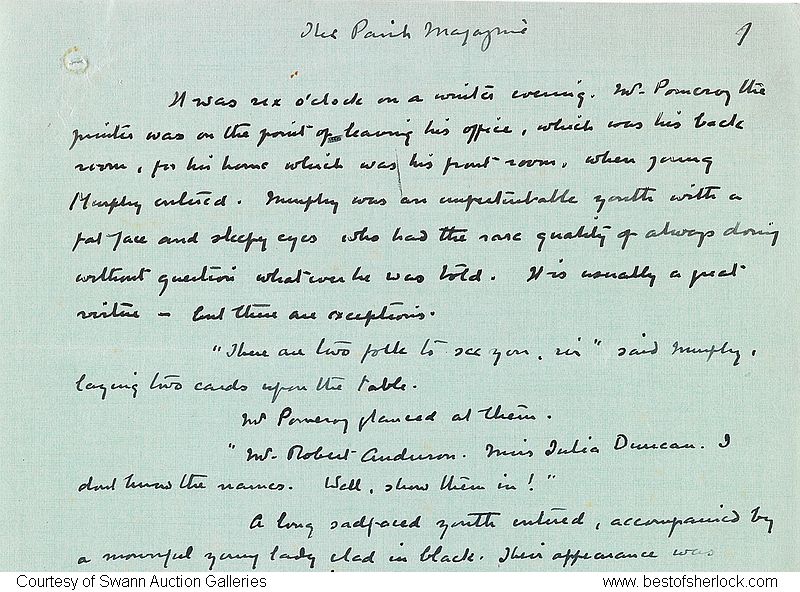 The Parish Magazine 1
It was six o'clock on a winter evening. Mr. Pomeroy the
printer was on the point of leaving his office, which was his back
room, for his home which was his front room, when young
Murphy entered. Murphy was an imperturbable youth with a
fat face and sleepy eyes who had the rare quality of always doing
without question whatever he was told. It is usually a great
virtue – but there are exceptions.
"There are two folk to see you, sir" said Murphy,
laying two cards upon the table.
Mr Pomeroy glanced at them.
"Mr. Robert Anderson. Miss Julia Duncan. I
dont know the names. Well, show them in!"
A long sadfaced youth entered, accompanied by
a mournful young lady clad in black. Their appearance was
Courtesy of Swann Auction Galleries www. bestofsherlock.com